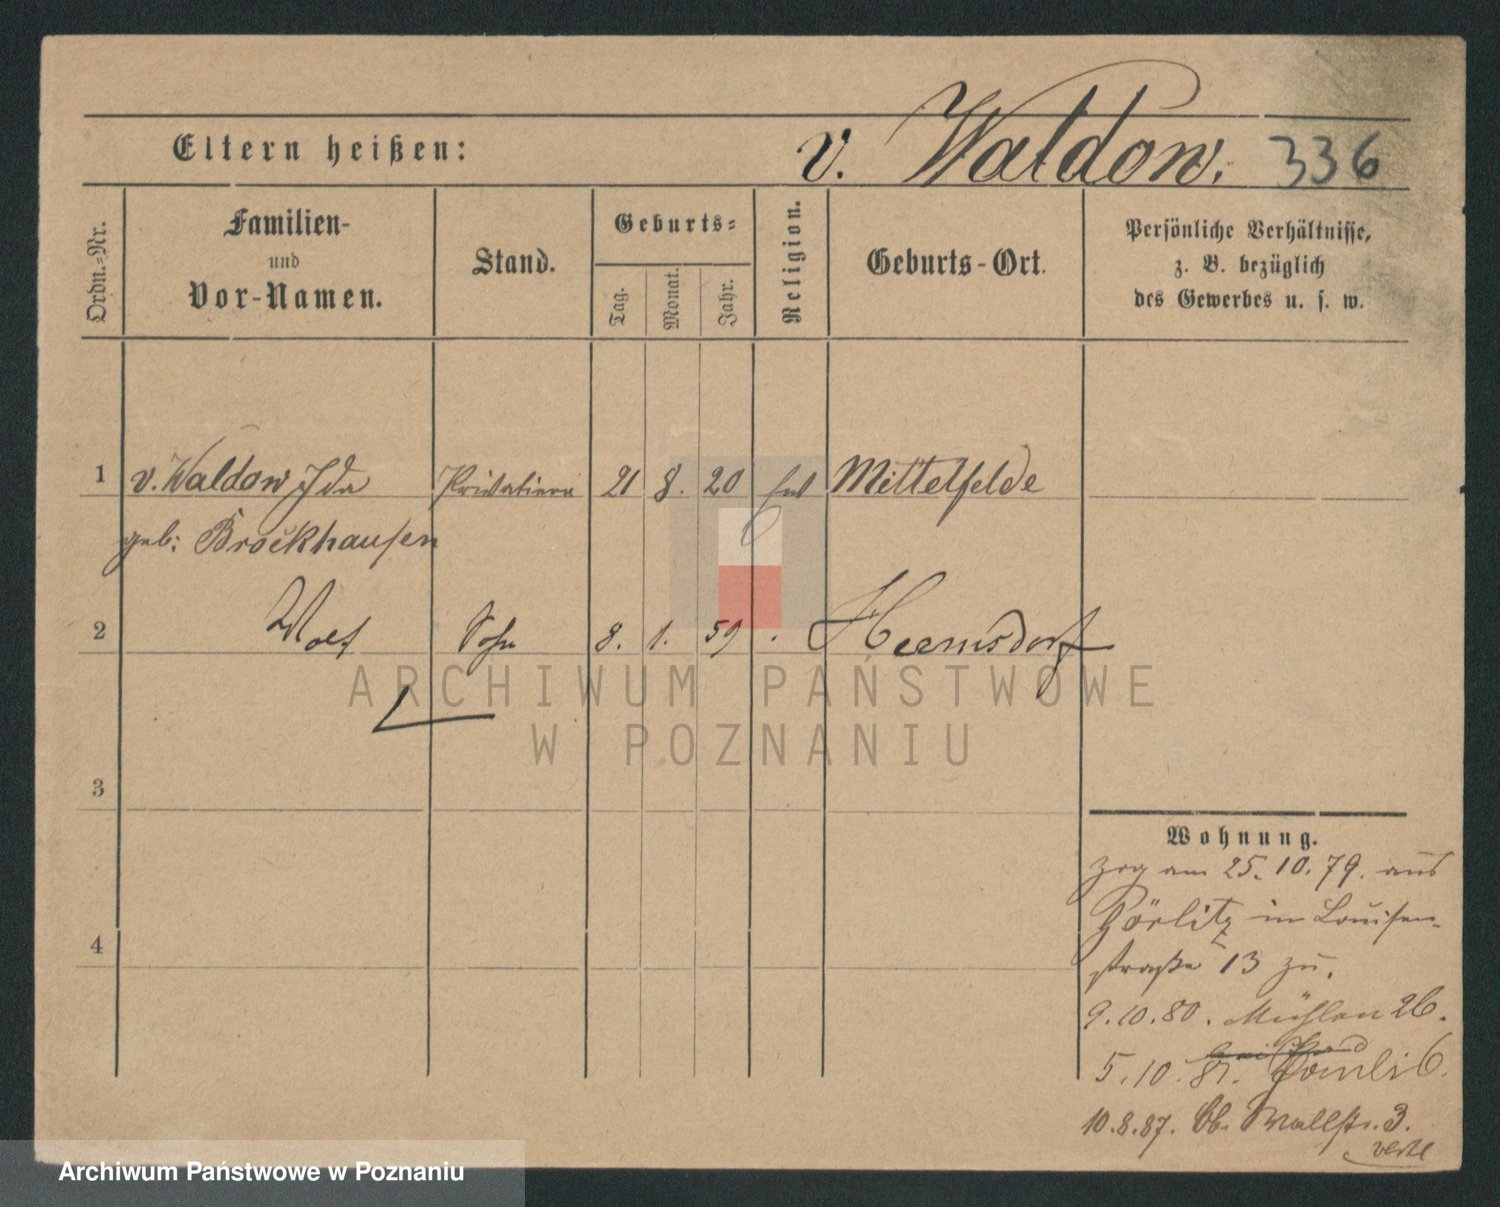 Eltern heißen: v. Waldow. 336
Ordn.=Nr.
Familien-
und
Vor-Namen.
Stand.
Geburts=
Tag.
Monat.
Jahr.
Religion.
Geburts-Ort.
Persönliche Verhältnisse,
z. B. bezüglich
des Gewerbes u. s. w.
1 v. Waldow Ida Privatiere 21 8. 20 Mittelfelde
geb: Brockhausen
2 Wolf Sohn 8. 1. 59 Hermsdorf
ARCHIWUM PAŃSTWOWE
W POZNANIU
3
4
Wohnung.
zog am 25.10.79. aus
Görlitz in Louisen-
straße 13 zu.
9.10.80. Mühlen 26.
5.10.81. 6.
10.8.87. Ob. Wallstr. 3.
verte
Archiwum Państwowe w Poznaniu